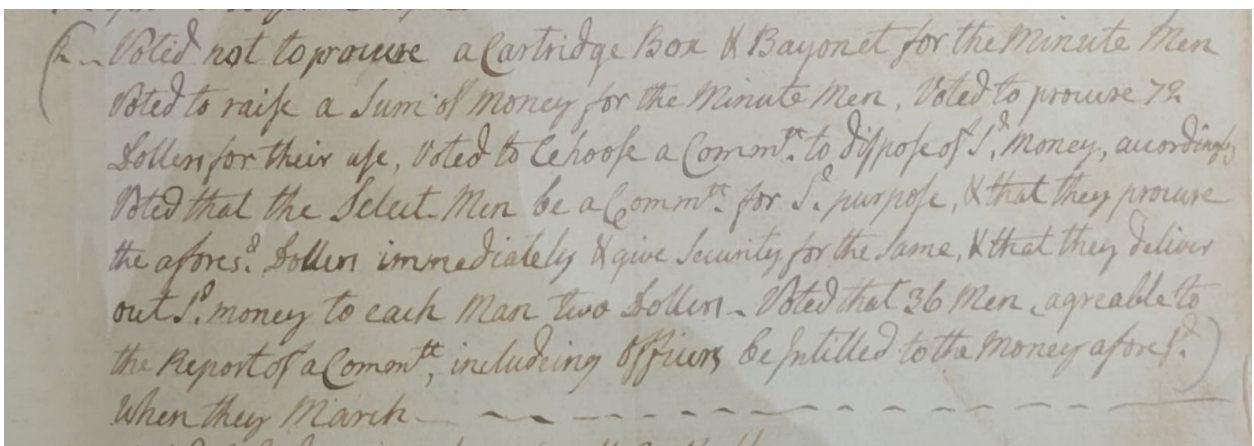 (2 - Voted not to procure a Cartridge Box & Bayonet for the Minute Men
Voted to raise a Sum of Money for the Minute Men, Voted to procure 72
Dollers for their use, Voted to Choose a Commtt. to dispose of Sd. Money, accordingly
Voted that the Select-Men be a Commtt. for Sd. purpose, & that they procure
the aforesd. Dollers immediately & give Security for the Same, & that they deliver
out Sd. money to each Man two Dollers - Voted that 36 Men, agreable to
the Report of a Commtt, including Officers be Intitled to the Money aforesd.)
When they March